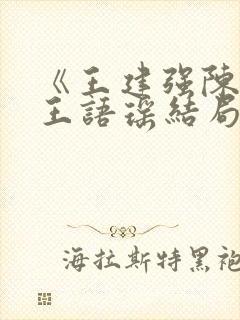 《王建强陈
王語瑶结局
海拉斯特黑袍